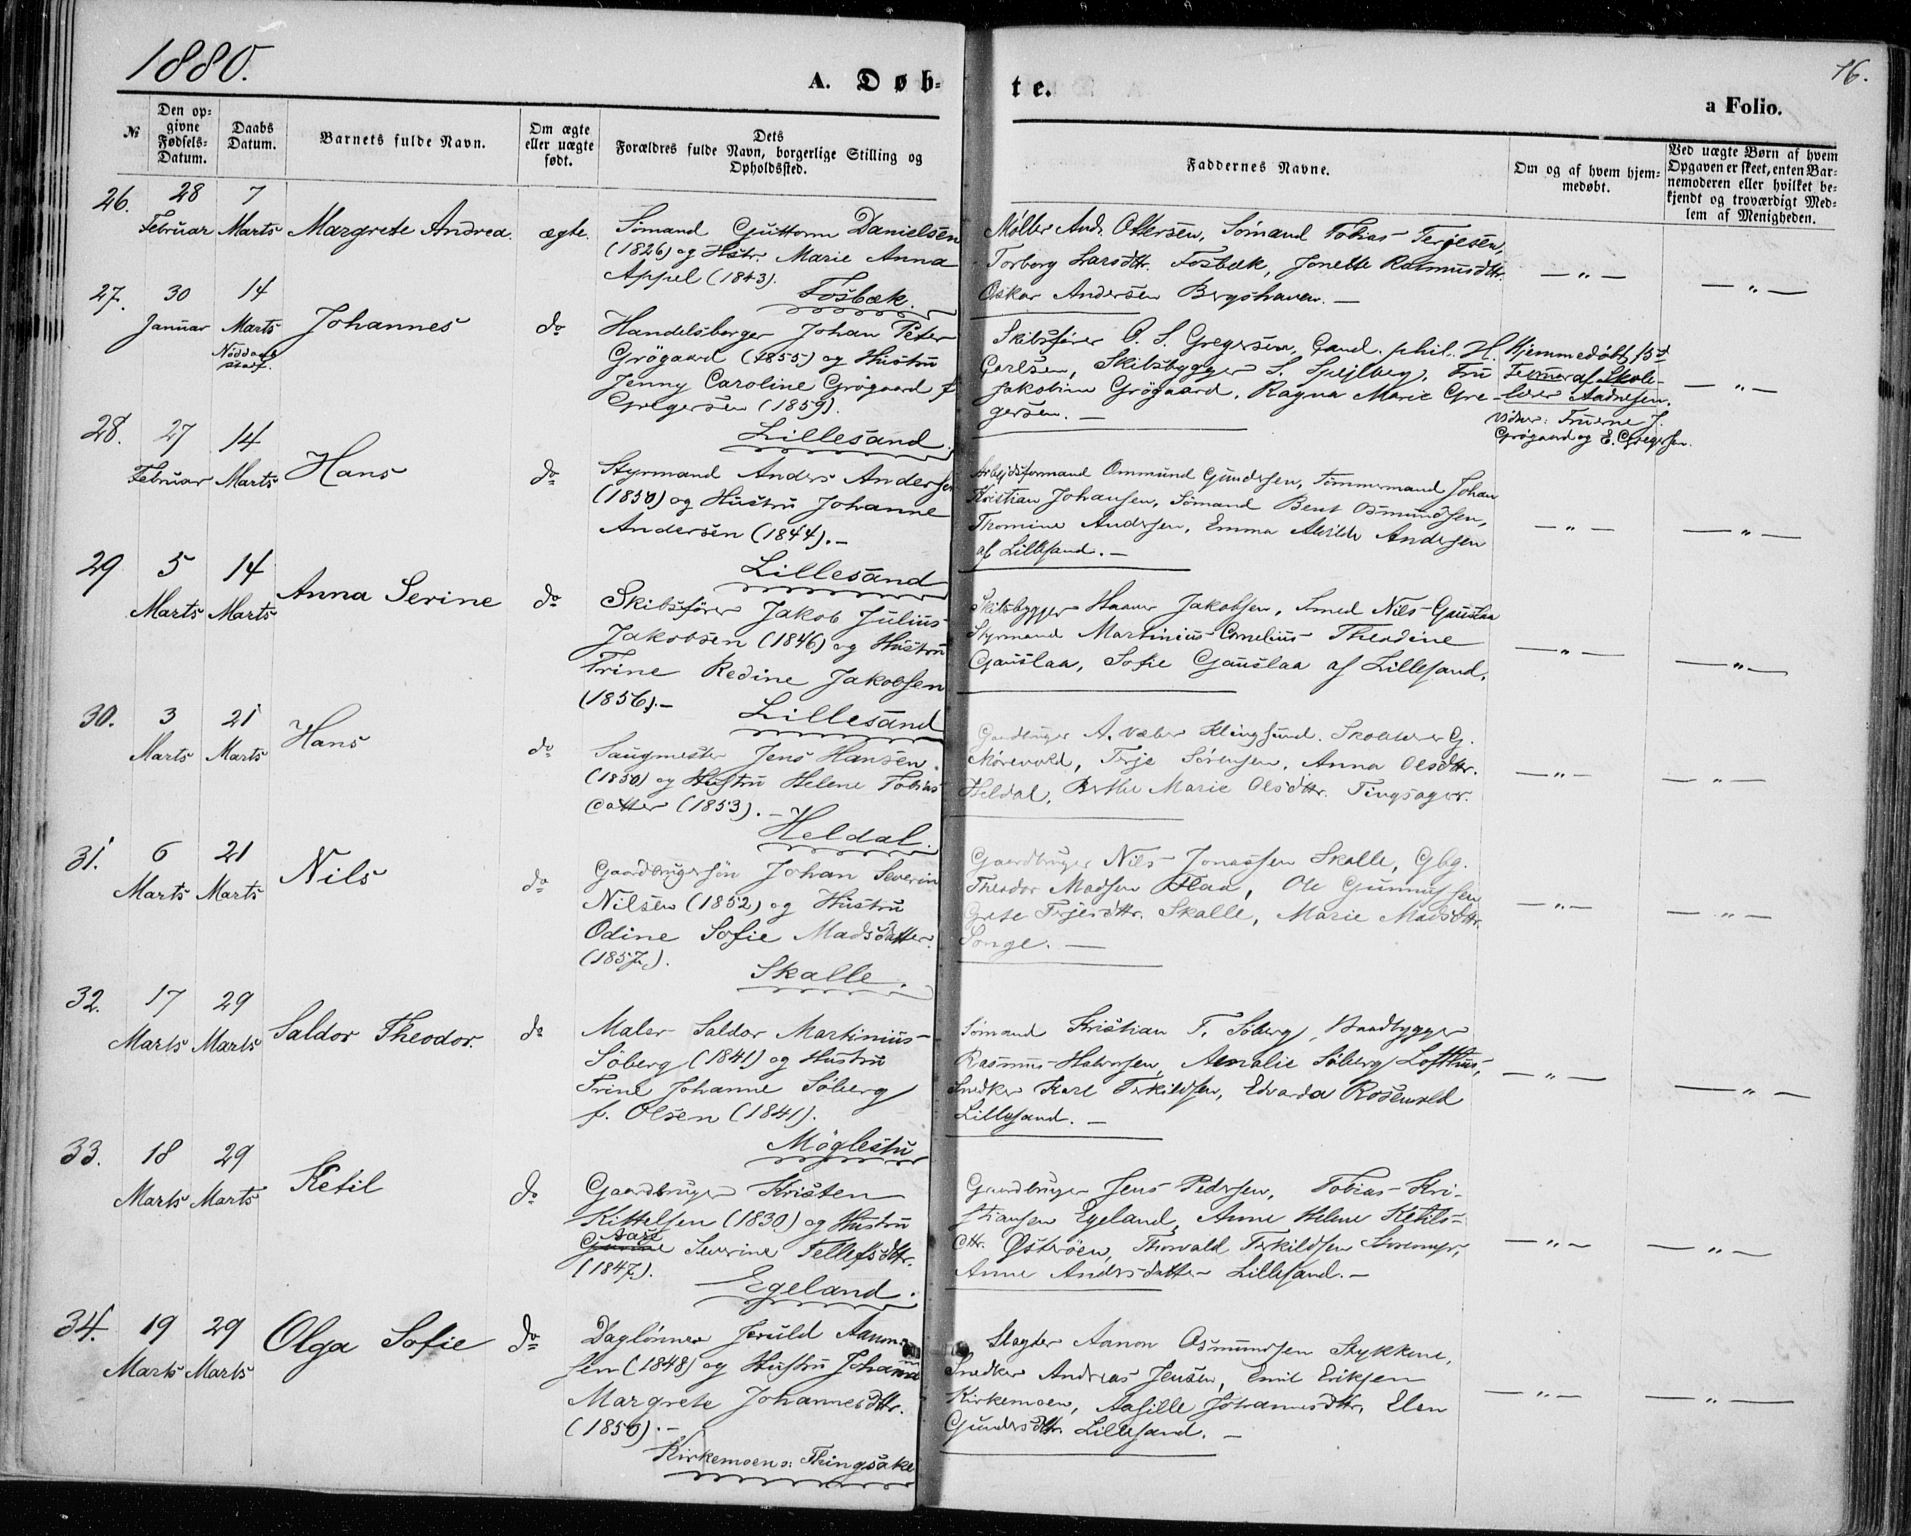 1880.
16.
A. Døb-
te.
a Folio.
№
Den op-
givne
Fødsels-
Datum.
Daabs
Datum.
Barnets fulde Navn.
Om ægte
eller uægte
født.
Dets
Forældres fulde Navn, borgerlige Stilling og
Opholdssted.
Faddernes Navne.
Om og af hvem hjem-
medøbt.
Ved uægte Børn af hvem
Opgaven er skeet, enten Bar-
nemoderen eller hvilket be-
kjendt og troværdigt Med-
lem af Menigheden.
26. 28 Februar 7 Marts Margrete Andrea. ægte.
Sömand Guttorm Danielsen
(1826) og Hstr. Marie Anna
Appel (1843).
Fosbæk.
Møller And. Ottersen, Sömand Tobias Terjesen,
Torborg Larsdtr. Fosbæk, Jonette Rasmusdtr.
Oskar Andersen Bergshaven. —
— " —
— " —
27. 30 Januar 14 Marts Johannes do
Handelsborger Johan Peter
Grögaard (1855) og Hustru
Jenny Caroline Grögaard f.
Gregersen (1859).
Lillesand.
Skibsfører O. S. Gregersen, Cand. phil. H.
Carlsen, Skibsbygger S. Spejlberg, Fru
Jakobine Grögaard, Ragna Marie Gre-
gersen. —
Hjemmedøbt 15d
Februar af Skole-
lærer Aadnesen.
Vidner: Fruerne J.
Grögaard og E. Gregersen.
— " —
28. 27 Februar 14 Marts Hans do
Styrmand Anders Andersen
(1850) og Hustru Johanne
Andersen (1844). —
Lillesand
Arbejdsformand Ommund Gundersen, Tömmermand Johan
Kristian Johansen, Sömand Bent Osmundsen,
Thomine Andersen, Emma Alvilde Andersen
af Lillesand. —
— " —
— " —
29 5 Marts 14 Marts Anna Serine do
Skibsfører Jakob Julius
Jakobsen (1846) og Hustru
Trine Redine Jakobsen
(1856). —
Lillesand
Skibsbygger Haaver Jakobsen, Smed Nils Gauslaa
Styrmand Martinius Cornelius Theodine
Gauslaa, Sofie Gauslaa af Lillesand.
— " —
— " —
30. 3 Marts 21 Marts Hans do
Saugmester Jens Hansen
(1850) og Hustru Helene Tobias
datter (1853). —
Heldal.
Gaardbruger A. Væber Klingsund. G.
Terje Sörensen, Anna Olsdtr.
Heldal, Berthe Marie Olsdtr. Tingsager.
— " —
— " —
31. 6 Marts 21 Marts Nils do
Gaardbrugersön Johan Severin
Nilsen (1852) og Hustru
Odine Sofie Madsdatter.
(1857).
Skalle.
Gaardbruger Nils Jonassen Skalle, Gbg.
Theodor Madsen Flaa, Ole Gunnufsen
Grete Terjesdtr. Skalle, Marie Madsdtr.
Songe. —
— " —
— " —
32. 17 Marts 29 Marts Saldor Theodor. do
Maler Saldor Martinius
Söberg (1841) og Hustru
Trine Johanne Söberg
f. Olsen (1841).
Möglestu
Sömand Kristian T. Söberg, Baadbygger
Rasmus Halvorsen, Amalie Söberg Lofthus,
Snedker Karl Terkildsen, Edvarda Rosenvold
Lillesand. —
— " —
— " —
33. 18 Marts 29 Marts Ketil do
Gaardbruger Kristen
Kittelsen (1830) og Hustru
Severine Tellefsdtr.
(1847).
Egeland.
Gaardbruger Jens Pedersen, Tobias Kri-
stiansen Egeland, Anne Helene Ketils-
dtr. Österöen, Thorvald Terkildsen
Anne Andersdatter Lillesand. —
— " —
— " —
34. 19 Marts 29 Marts Olga Sofie do
Daglönner Jeruld Aanon-
sen (1848) og Hustru Johanna
Margrete Johannesdtr.
(1850). —
Kirkemoen Thingsake
Slagter Aanon Osmundsen Stykkene,
Snedker Andreas Jensen, Emil Eriksen
Kirkemoen, Aasille Johannesdtr. Elen
Gundersdtr. Lillesand. —
— " —
— " —